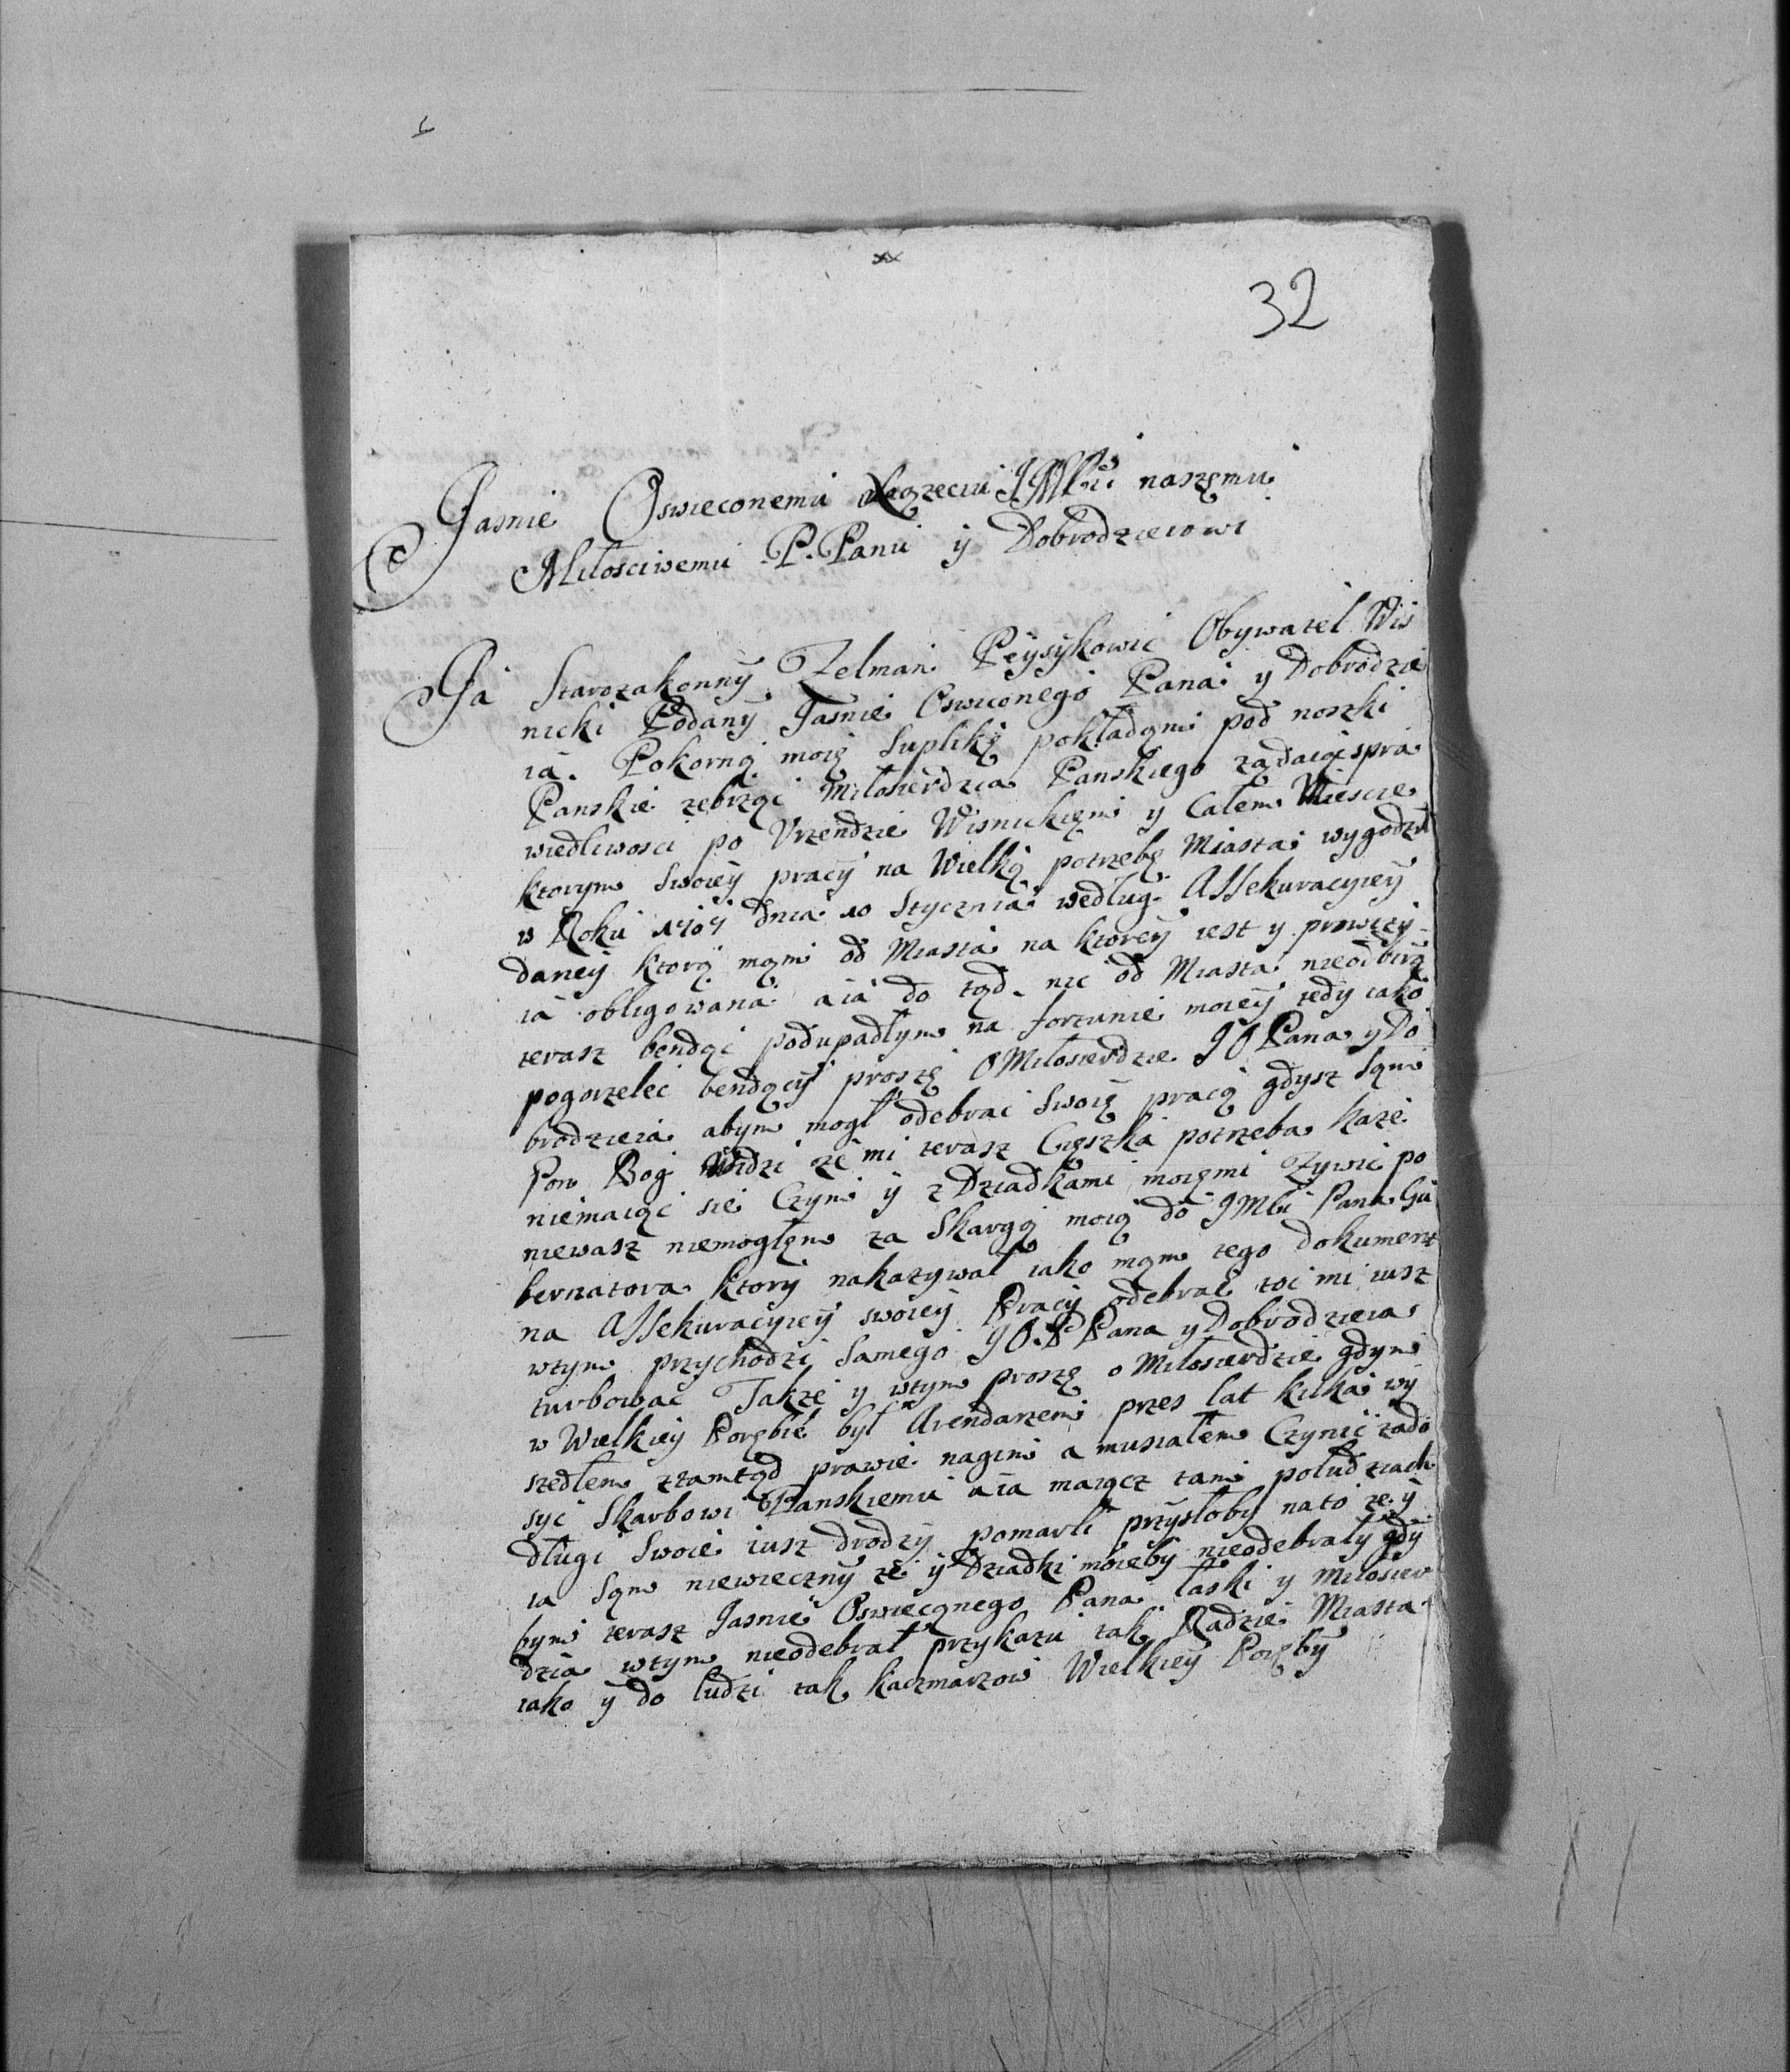 32
Jasnie Oswieconemu Xiązeciu JMści naszęmu
Miłosciwemu P. Panu ÿ Dobrodzieiowi
Ja Starozakonnÿ Zelman Peysykowic Obywatel Wis
nicki Podanÿ Jasnie Oswiconego Pana y Dobrodzie
ia. Pokorną moię Suplikę pokładąm pod noszki
Panskie zebrząc Miłosierdzia Panskiego ządaiąc spra
wiedliwosci po Vrzendzie Wisnickięm y Całem Miescie
ktorym Swoiey pracÿ na Wielką potrzebę Miasta wygodzył
w Roku 1707 dnia 10 Stycznia według Assekuracyieÿ
daneÿ ktorą mąm od Miasta na ktoreÿ iest y prowizy
ia obligowana aia do tąd nic od Miasta nieodbirą
terasz bendąc podupadłym na fortunie moieÿ tedy iako
pogorzelec bendącÿ proszę o Miłosierdzie JO Pana y Do
brodzieia abym mogł odebrac Swoię pracą gdysz Sąm
Pan Bog Widzi ze mi terasz Cięszka potrzeba kaze
niemaiąc sie Czym ÿ z Dziadkami moięmi Zywic po
niewasz niemogłęm za Skargą moią do JMści Pana Gu
bernatora ktory nakazywał iako mąm tego dokument
na Assekuracyieÿ swoieÿ Pracÿ odebrac toc mi iusz
wtym przychodzi Samego JO. P Pana y Dobrodzieia
turbowac Takze y wtym proszę o Miłosierdzie gdym
w Wielkieÿ Porębie był Arendarzem przes lat kilka wÿ
szedłem ztamtąd prawie nagim a musiałem Czynic zado
syc Skarbowi Panskiemu aia maiącz tam poludziach
długi Swoie iusz drodzÿ pomarli przysłoby nato ze ÿ
ia Sąm niewiecznÿ ze ÿ Dziadki moieby nieodebrałÿ gdÿ
bym terasz Jasnie Oswiecąnego Pana łaski y Miłosier
dzia wtym nieodebrał przykazu tak Radzie Miasta
iako ÿ do ludzi tak kaczmarzow Wielkieÿ Porębÿ